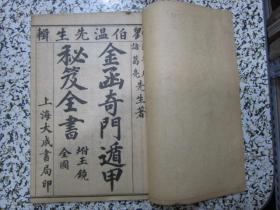 劉伯温先生輯
諸葛亮先生著
金函奇門遁甲
秘笈全書
坿玉鏡
全圖
上海大成書局印